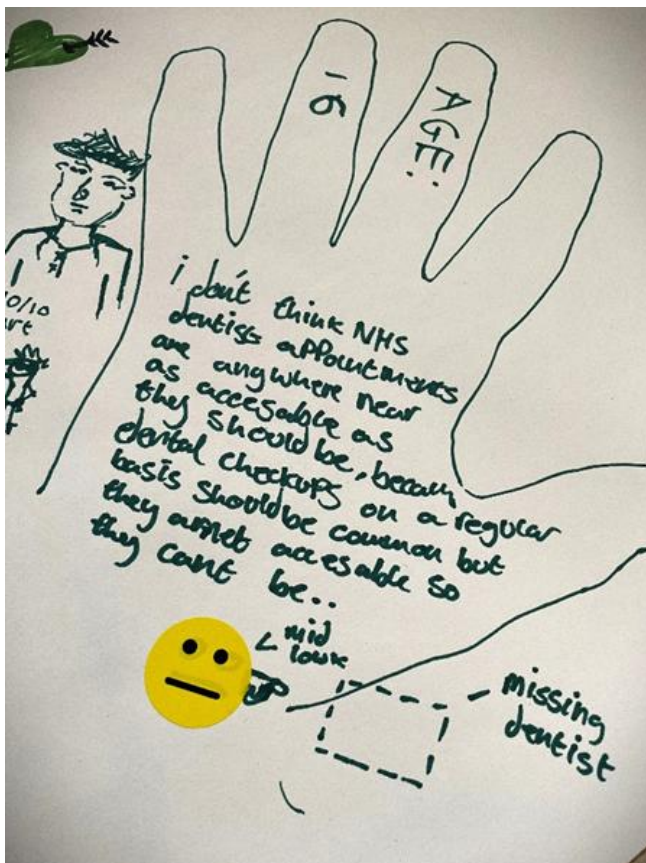 AGE:
16
i don't think NHS
dentist appointments
are anywhere near
as accesable as
they should be, becaus
dental checkups on a regular
basis should be common but
they arnet accesable so
they cant be..
< mid
missing
dentist
10/10